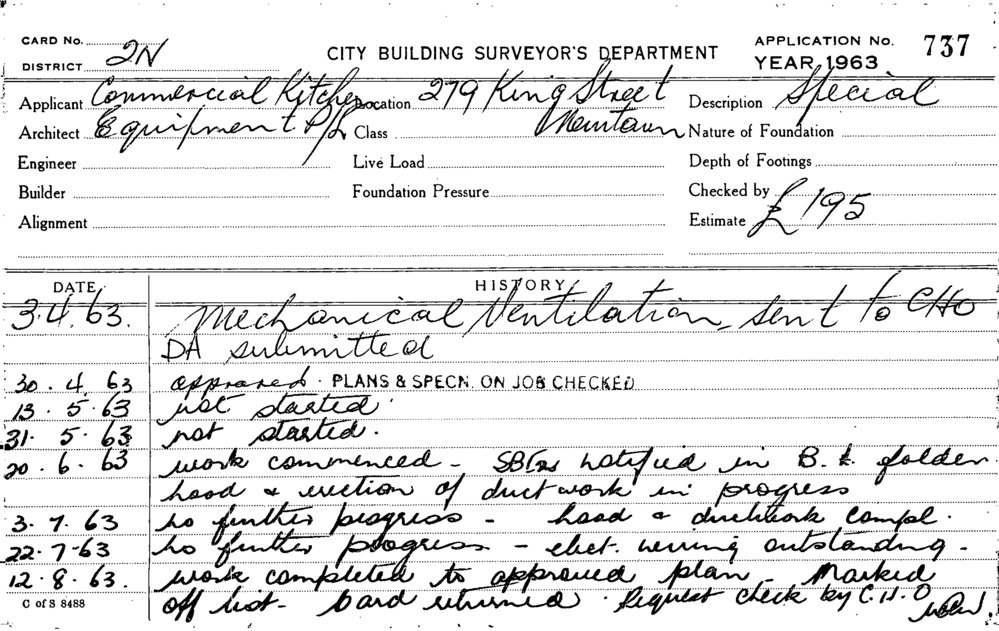 CARD No.
DISTRICT 2N
CITY BUILDING SURVEYOR'S DEPARTMENT
APPLICATION No. 737
YEAR 1963
Applicant Commercial Kitchen Location 279 King Street Description Special
Architect Equipment P/L Class Newtown Nature of Foundation
Engineer Live Load Depth of Footings
Builder Foundation Pressure Checked by
Alignment Estimate £195
DATE HISTORY
3.4.63. Mechanical Ventilation, sent to CHO
DA submitted
30.4.63 approved. PLANS & SPECN. ON JOB CHECKED
13.5.63 not started.
31.5.63 not started.
20.6.63 work commenced - notified in B. folder.
hood & erection of ductwork in progress
3.7.63 no further progress - hood & ductwork compl.
22.7.63 no further progress - elect. wiring outstanding -
12.8.63. work completed to approved plan - Marked
off list - Card returned. Request check by C.H.O
C of S 8488